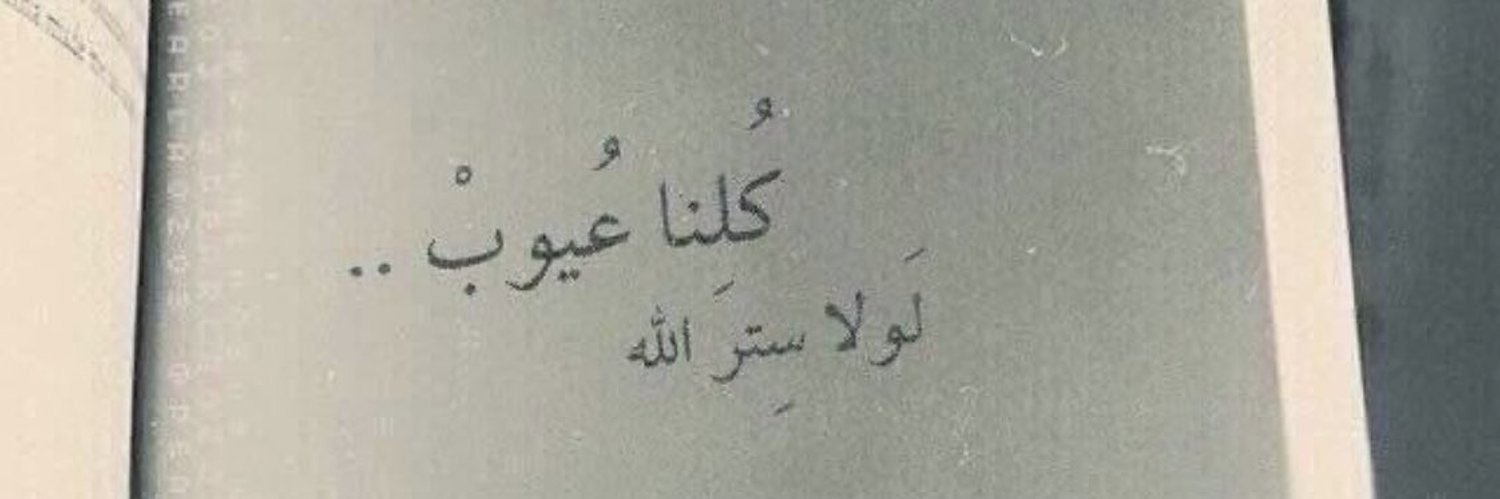 كُلنا عُيوبْ ..
لَولا سِترَ الله